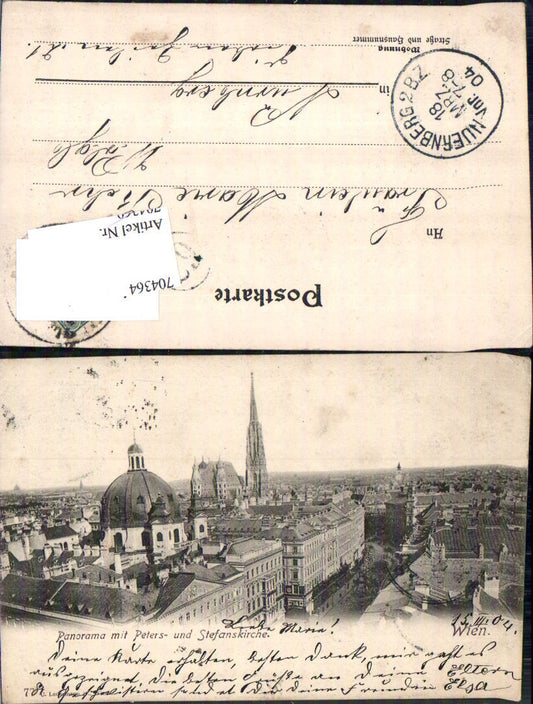 Straße und Hausnummer
Wohnung
in Nürnberg
NUERNBERG 2 B.Z.
18
MRZ
7-8
Vor. 04
Fräulein Marie
An
Postkarte
Artikel Nr.
704364
704364
Liebe Marie!
15.III.04.
Panorama mit Peters- und Stefanskirche.
Wien.
Deine Karte erhalten, besten Dank, mir geht es
ausgezeichnet. Die besten Grüße an Deine Eltern
Geschwistern sendet Dir Deine Freundin Elsa